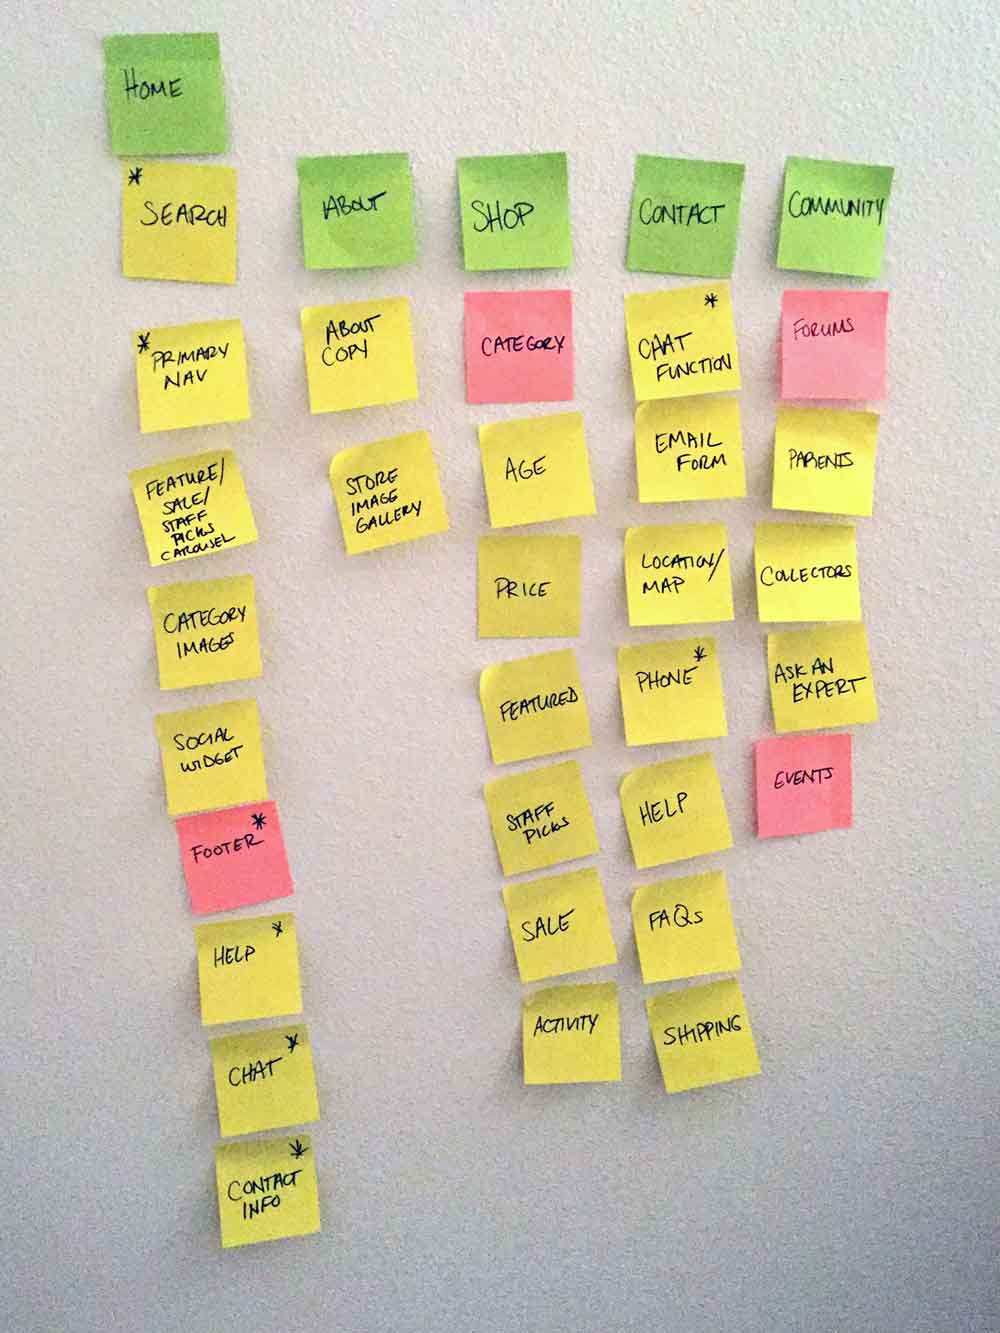 HOME
* SEARCH
* PRIMARY
NAV
FEATURE/
SALE/
STAFF
PICKS
CAROUSEL
CATEGORY
IMAGES
SOCIAL
WIDGET
*
FOOTER
*
HELP
*
CHAT
*
CONTACT
INFO
ABOUT
ABOUT
COPY
STORE
IMAGE
GALLERY
SHOP
CATEGORY
AGE
PRICE
FEATURED
STAFF
PICKS
SALE
ACTIVITY
CONTACT
*
CHAT
FUNCTION
EMAIL
FORM
LOCATION/
MAP
*
PHONE
HELP
FAQs
SHIPPING
COMMUNITY
FORUMS
PARENTS
COLLECTORS
ASK AN
EXPERT
EVENTS